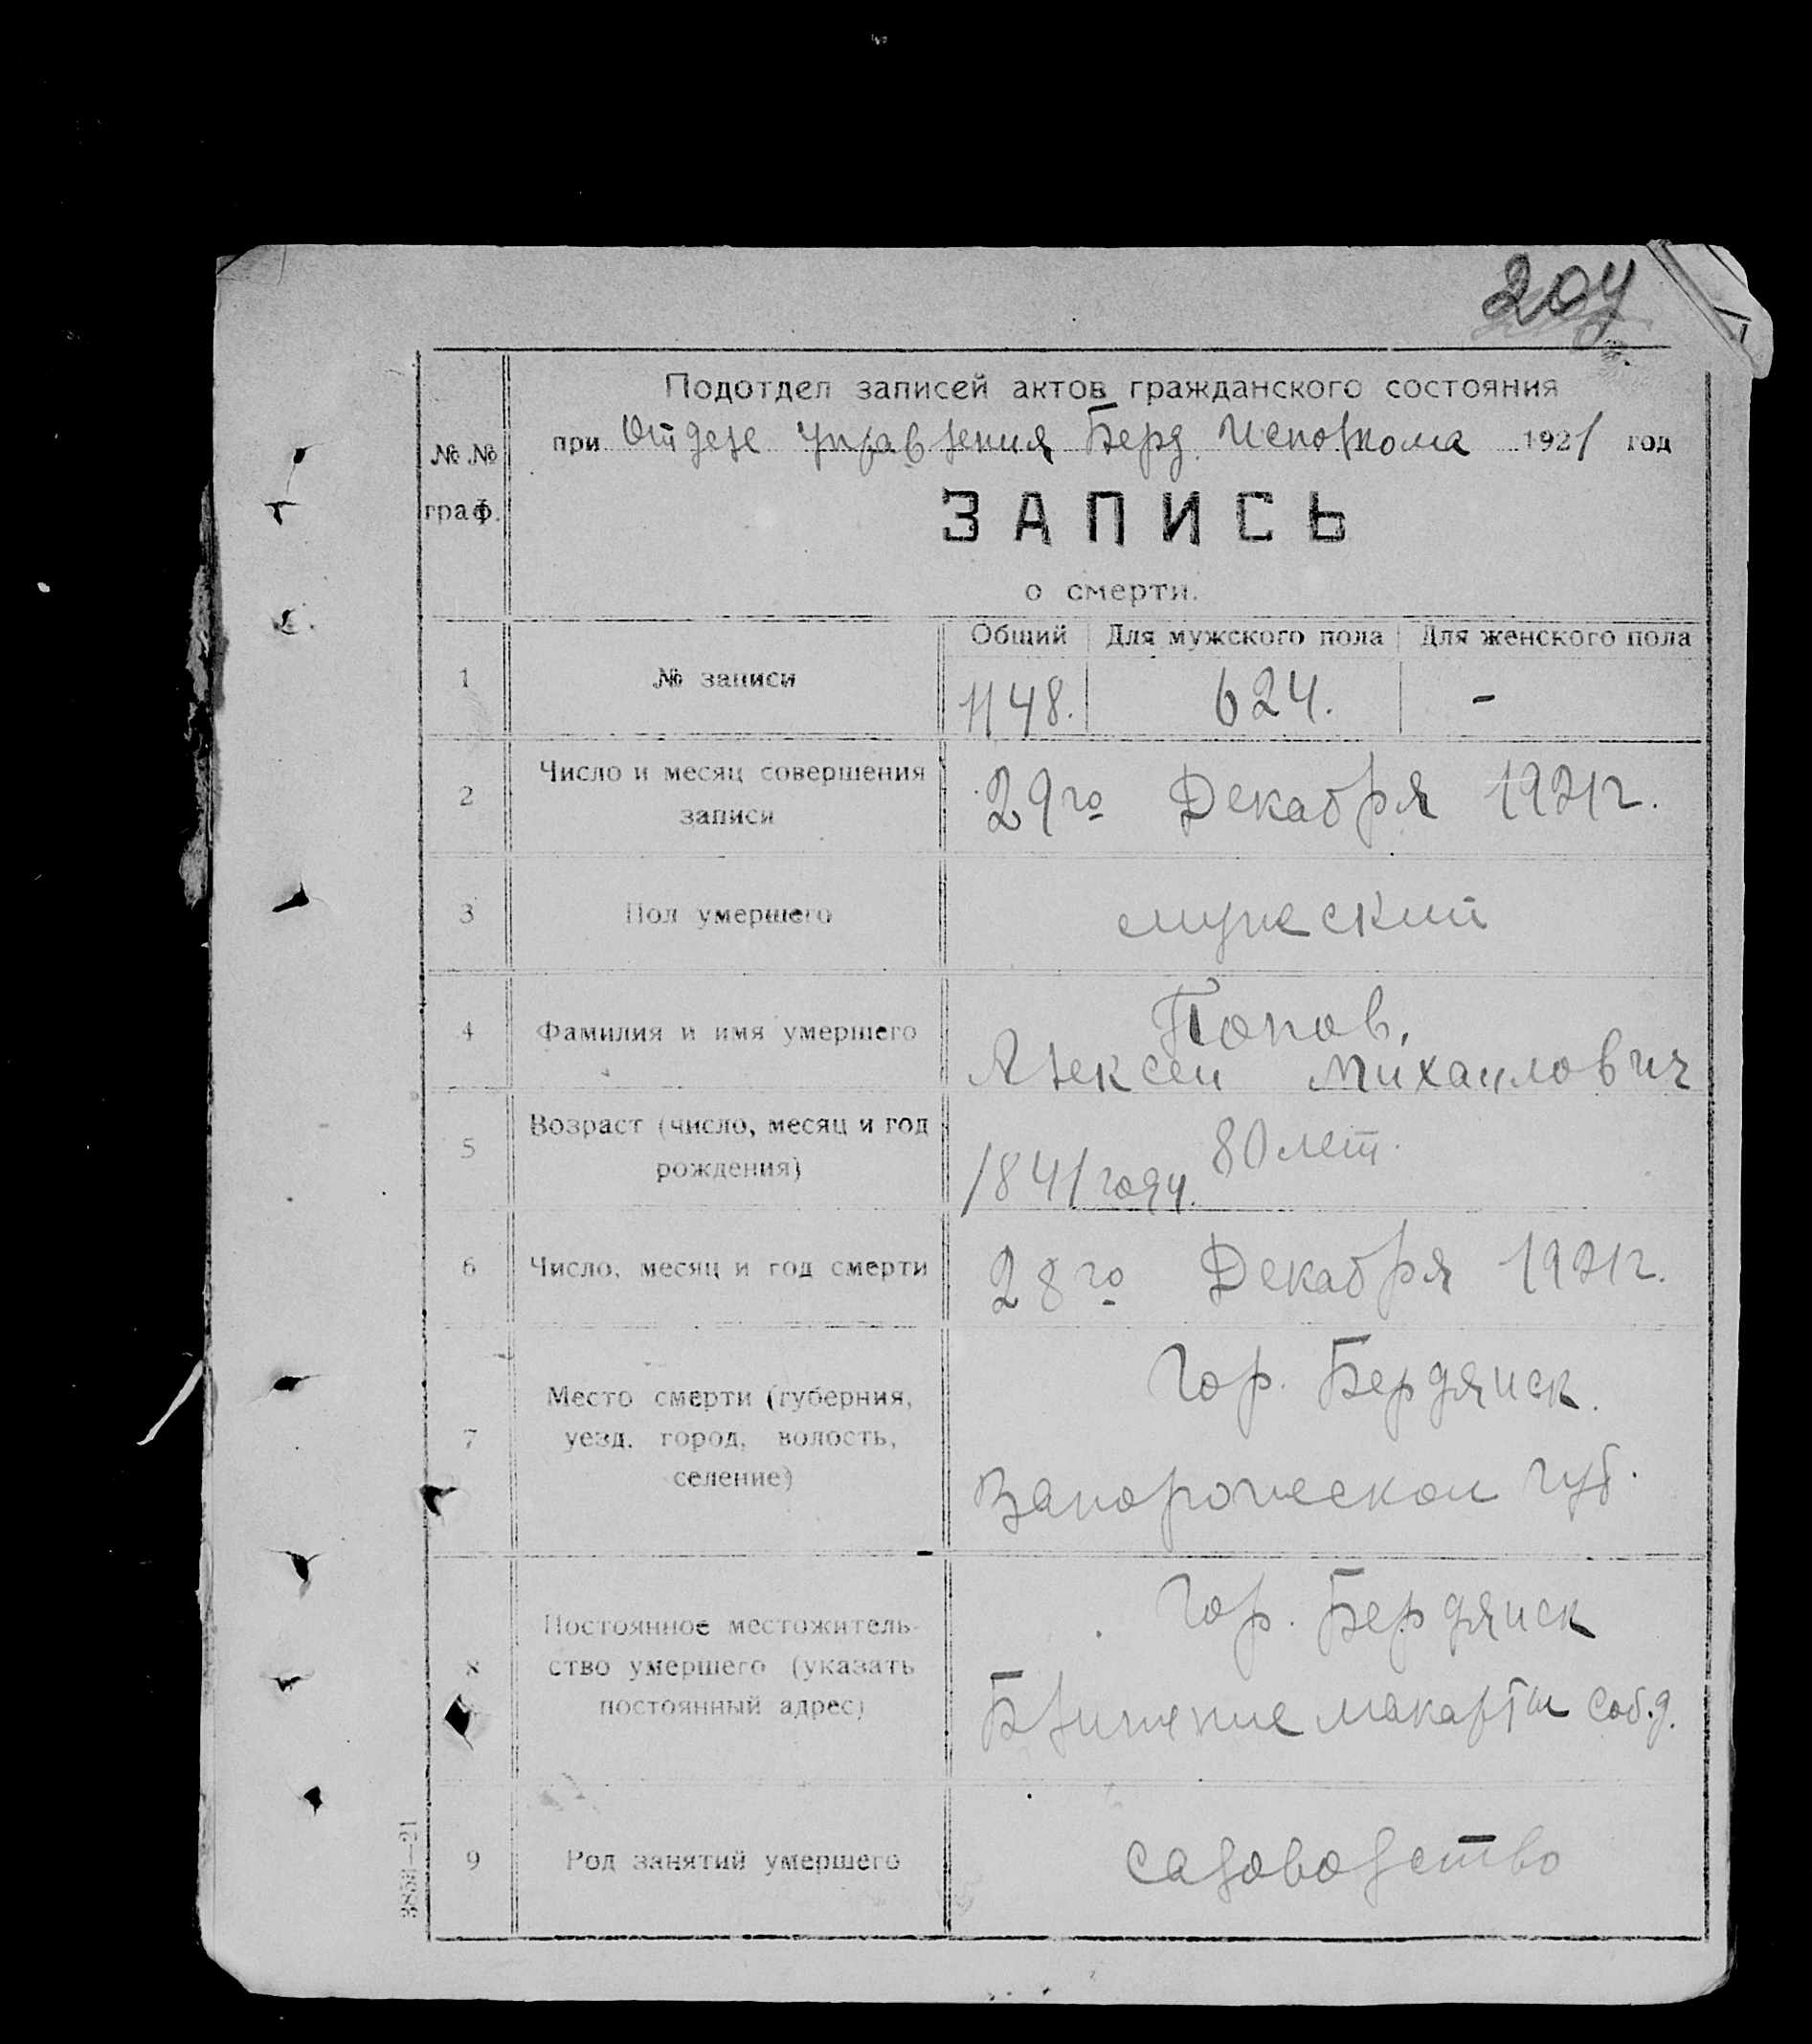 204
Подотдел записей актов гражданского состояния
№ №
граф.
при Отделе Управления Берд. Исполкома 1921 год
ЗАПИСЬ
о смерти.
Общий Для мужского пола Для женского пола
1 № записи 1148. 624. -
2 Число и месяц совершения
записи
29го Декабря 1921г.
3 Пол умершего мужеский
4 Фамилия и имя умершего
Попов,
Алексей Михаилович
5 Возраст (число, месяц и год
рождения)
80 лет.
1841 году.
6 Число, месяц и год смерти 28го Декабря 1921г.
7 Место смерти (губерния,
уезд, город, волость,
селение)
Гор. Бердянск.
Запорожеской губ.
8 Постоянное местожитель-
ство умершего (указать
постоянный адрес)
Гор. Бердянск
соб.д.
9 Род занятий умершего садоводство